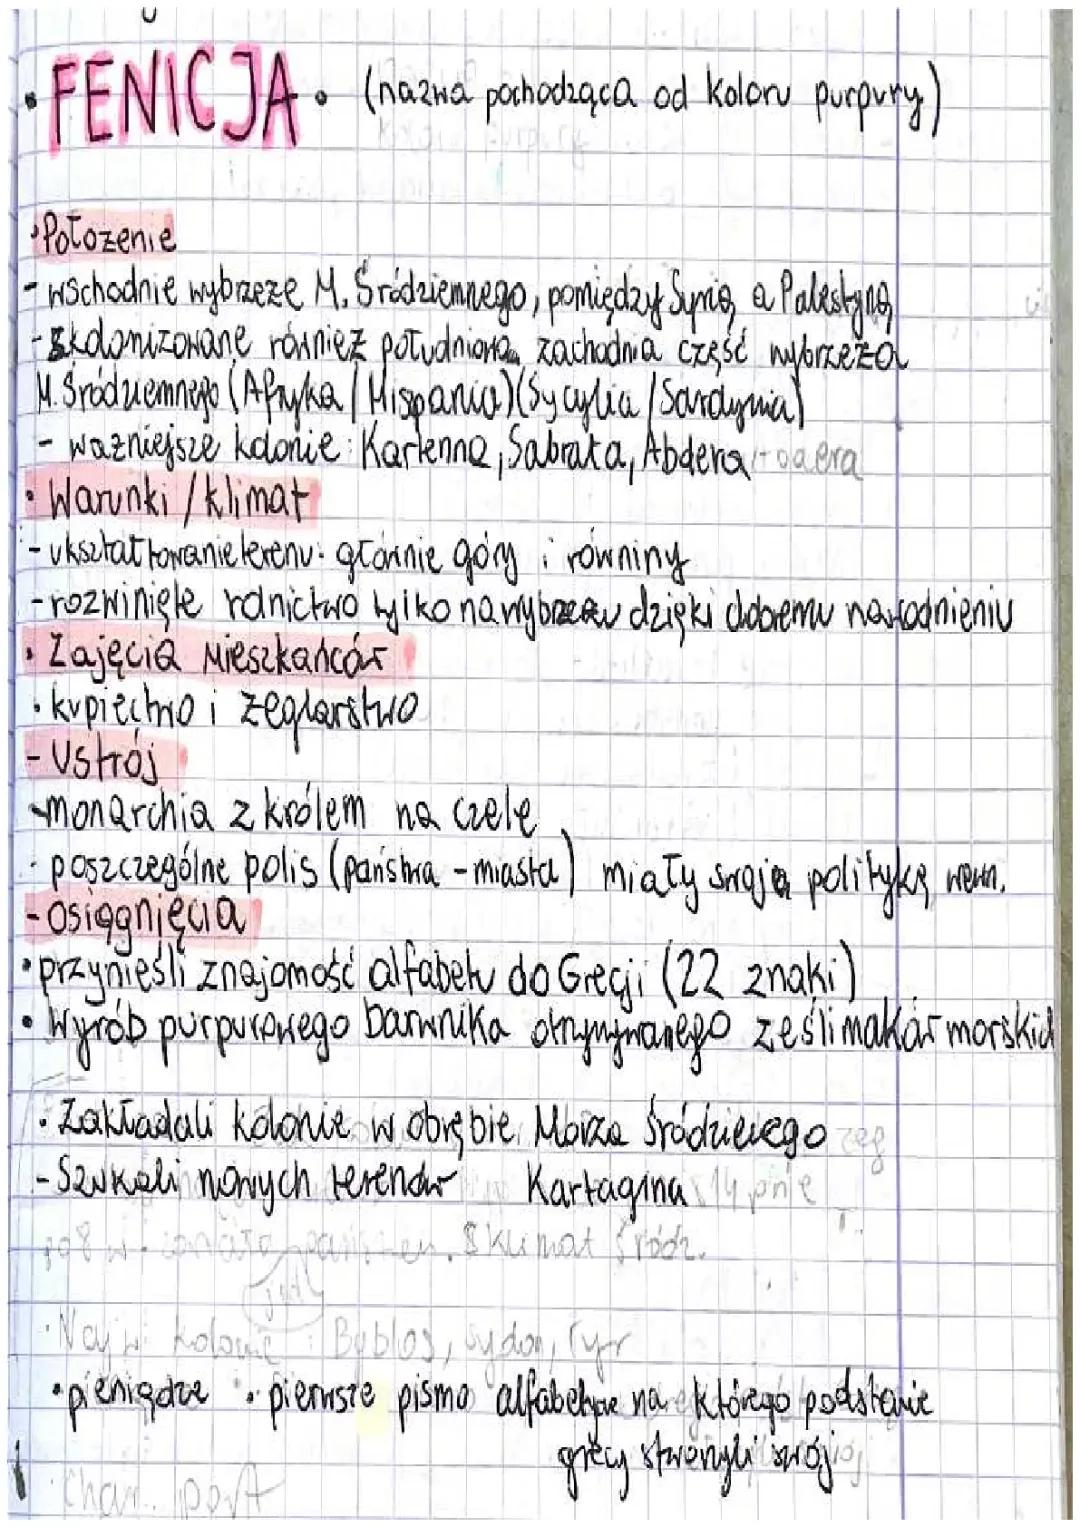 • FENICJA • (nazwa pochodząca od koloru purpury)
• Położenie
- wschodnie wybrzeże M. Śródziemnego, pomiędzy Syrią a Palestyną
- skolonizowane również południowa zachodnia część wybrzeża
M. Śródziemnego (Afryka / Hispania) (Sycylia / Sardynia)
- ważniejsze kolonie: Kartenna, Sabrata, Abdera
• Warunki / klimat
- ukształtowanie terenu: głównie góry i równiny
- rozwinięte rolnictwo tylko na wybrzeżu dzięki dobremu nawodnieniu
• Zajęcia Mieszkańców
• kupiectwo i żeglarstwo
- Ustrój
- monarchia z królem na czele
• poszczególne polis (państwa - miasta) miały swoją politykę wewn.
- Osiągnięcia
• przynieśli znajomość alfabetu do Grecji (22 znaki)
• Wyrób purpurowego barwnika otrzymywanego ze ślimaków morskich
• Zakładali kolonie w obrębie Morza Śródziemego
- Szukali nowych terenów Kartagina
klimat śródz.
kolonie Byblos, Sydon, Tyr
• pieniądze • pierwsze pismo alfabetyczne na którego podstawie
grecy stworzyli swój